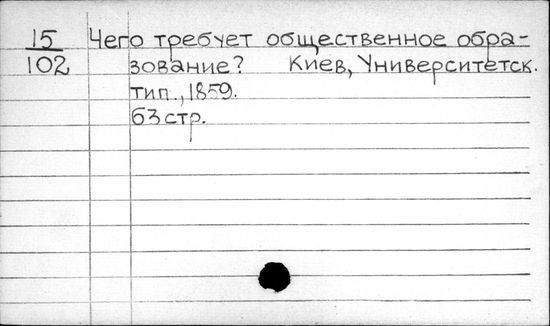 15 Чего требует общественное обра-
102 зование? Киев, Университетск.
тип., 1859.
63 стр.